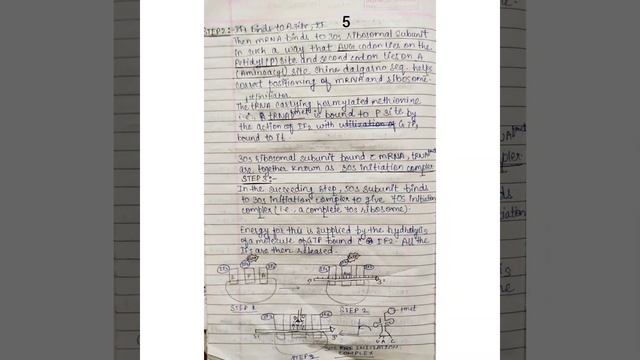 5
STEP2:- IF1 binds to A site, IF
Then mRNA binds to 30s ribosomal subunit
in such a way that AUG codon lies on the
Petidyl(P) site and second codon lies on A
(Aminoacyl) site. Shine dalgarno seq. helps
correct positioning of mRNA and ribosome.
initiator
The tRNA carrying formylated methionine
i.e. tRNA fmet is bound to P site by
the action of IF2 with utilization of GTP
bound to it
30s ribosomal subunit bound c mRNA, tRNA fmet
are together known as 30s initiation complex
STEP 3:-
In the succeeding step, 50s subunit binds
to 30s initiation complex to give 70s initiation
complex (i.e., a complete 70s ribosome).
Energy for this is supplied by the hydrolysis
of a molecule of GTP bound c IF2. All the
IFs are then released.
STEP 1
STEP 2
STEP 3
INITIATION
COMPLEX
fmet
UAC